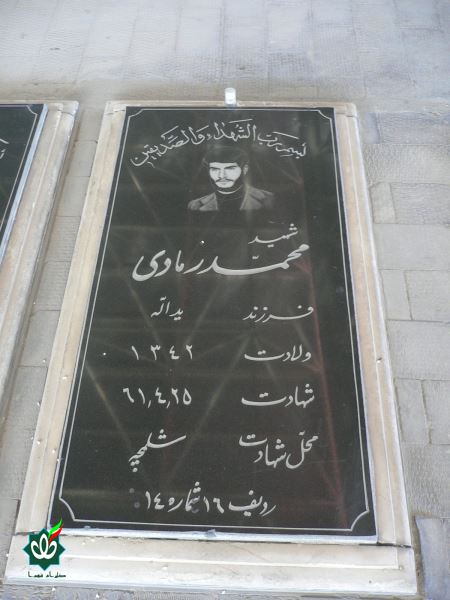 بسم رب الشهداء والصدیقین
شهید
محمد رمادی
فرزند یدالله
ولادت ۱۳۴۲
شهادت ۶۱,۴,۲۵
محل شهادت شلمچه
ردیف ۱۶ شماره ۱۴